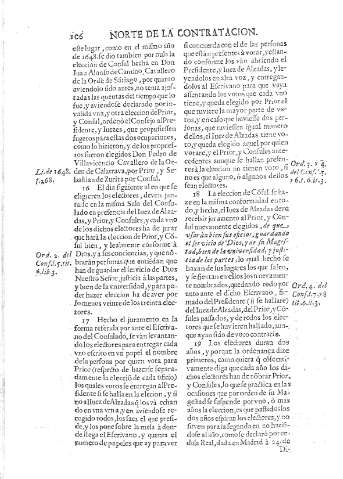 106 NORTE DE LA CONTRATACION.
este lugar, como en el mismo año
de 1648. se dió tambien por nula la
eleccion de Consul hecha en Don
Luis Alonso de Camino, Cavallero
de la Ordẽ de Sãtiago, por quanto
aviendolo sido antes, no tenia ajus-
tadas las cuentas del tiempo que lo
fue, y aviendose declarado por in-
valida una y otra eleccion de Prior,
y Consul, ordenó el Consejo al Pre-
sidente, y Juezes, que propusiessen
sugetos para estas dos ocupaciones,
como lo hizieron, y de los propues-
tos fueron elegidos Don Pedro de
Villavicencio Cavallero de la Or-
den de Calatrava, por Prior, y Se-
bastian de Zurita por Consul.
Lib. de 1648.
f. 268.
16 El dia siguiente al en que se
eligieren los electores, deven jun-
tarse en la misma Sala del Consu-
lado en presencia del Juez de Alza-
das, y Prior, y Consules, y cada vno
de los dichos electores ha de jurar
que hará la eleccion de Prior, y Cõ-
sul bien, y lealmente conforme à
Dios, y à sus conciencias, y que nõ-
brarán personas que entiendan que
han de guardar el servicio de Dios
Nuestro Señor, justicia à las partes,
y bien de la vniversidad, y para po-
der hazer eleccion ha de aver por
lo menos veinte de los treinta elec-
tores.
17 Hecho el juramento en la
forma referida por ante el Escriva-
no del Consulado, se van levantan-
do los electores para entregar cada
vno escrito en vn papel el nombre
de la persona por quien vota para
Prior (respecto de hazerse separa-
damente la eleccion de cada oficio)
los quales votos se entregan al Pre-
sidente si se halla en la eleccion, y si
no al Juez de Alçadas q̃ los và echan-
do en vna vrna, y en aviendose re-
cogido todos, los saca el que presi-
de, y los pone sobre la mesa à don-
de llega el Escrivano, y quenta el
numero de papeles que ay para ver
si concuerda con el de las personas
que están presentes à votar, y estan-
do conforme los van abriendo el
Presidente, y Juez de Alzadas, y le-
yendolos en alta voz, y entregan-
dolos al Escrivano para que vaya
assentando los votos que cada vno
tiene, y queda elegido por Prior el
que tuviere la mayor parte de vo-
tos; y en caso que huviesse dos per-
sonas, que tuviessen igual numero
dellos, el Juez de Alzadas tiene vo-
to, y queda elegido aquel por quien
votare, y el Prior, y Consules ante-
cedentes aunque se hallan presen-
tes à la eleccion no tienen voto, si
no es que alguno, ò algunos dellos
sean electores.
18 La eleccion de Cõsul se ha-
ze en la misma conformidad enton-
do, y hecha, el Juez de Alzadas deve
recebir juramento al Prior, y Con-
sul nuevamente elegidos, de que
vsarán bien sus oficios, guardando
el servicio de Dios, y de su Mages-
tad, bien de la vniversidad, y justi-
cia de las partes, lo qual hecho se
baxan de los lugares los que salen,
y se sientan en ellos los nuevamen-
te nombrados, quedando todo por
auto ante el dicho Escrivano, fir-
mado del Presidente (si se hallare)
del Juez de Alzadas, del Prior, y Cõ-
sules passados, y de todos los elec-
tores que se huvieren hallado, aun-
que ayan sido de voto contrario.
19 Los electores duran dos
años, y porque la ordenança dize
primeros, como quiera q̃ ofreciẽn-
damente diga que cada año los di-
chos electores han de nõbrar Prior,
y Consules, lo que se practica en las
ocasiones que por orden de su Ma-
gestad se suspende por vno, ò mas
años la eleccion, es que passados los
dos años espiran los electores, y no
sirven para la segunda en no havie-
dose al año, como se declaró por ce-
dula Real, dada en Madrid à 24. de
Di-
Ord. 4. del
Cons. f. 5. tit.
6. lib. 3.
Ord. 3. y 4.
del Cons. f. 5.
tit. 6. lib. 3.
Ord. 4. del
Cons. f. 7. y 8
tit. 6. lib. 3.